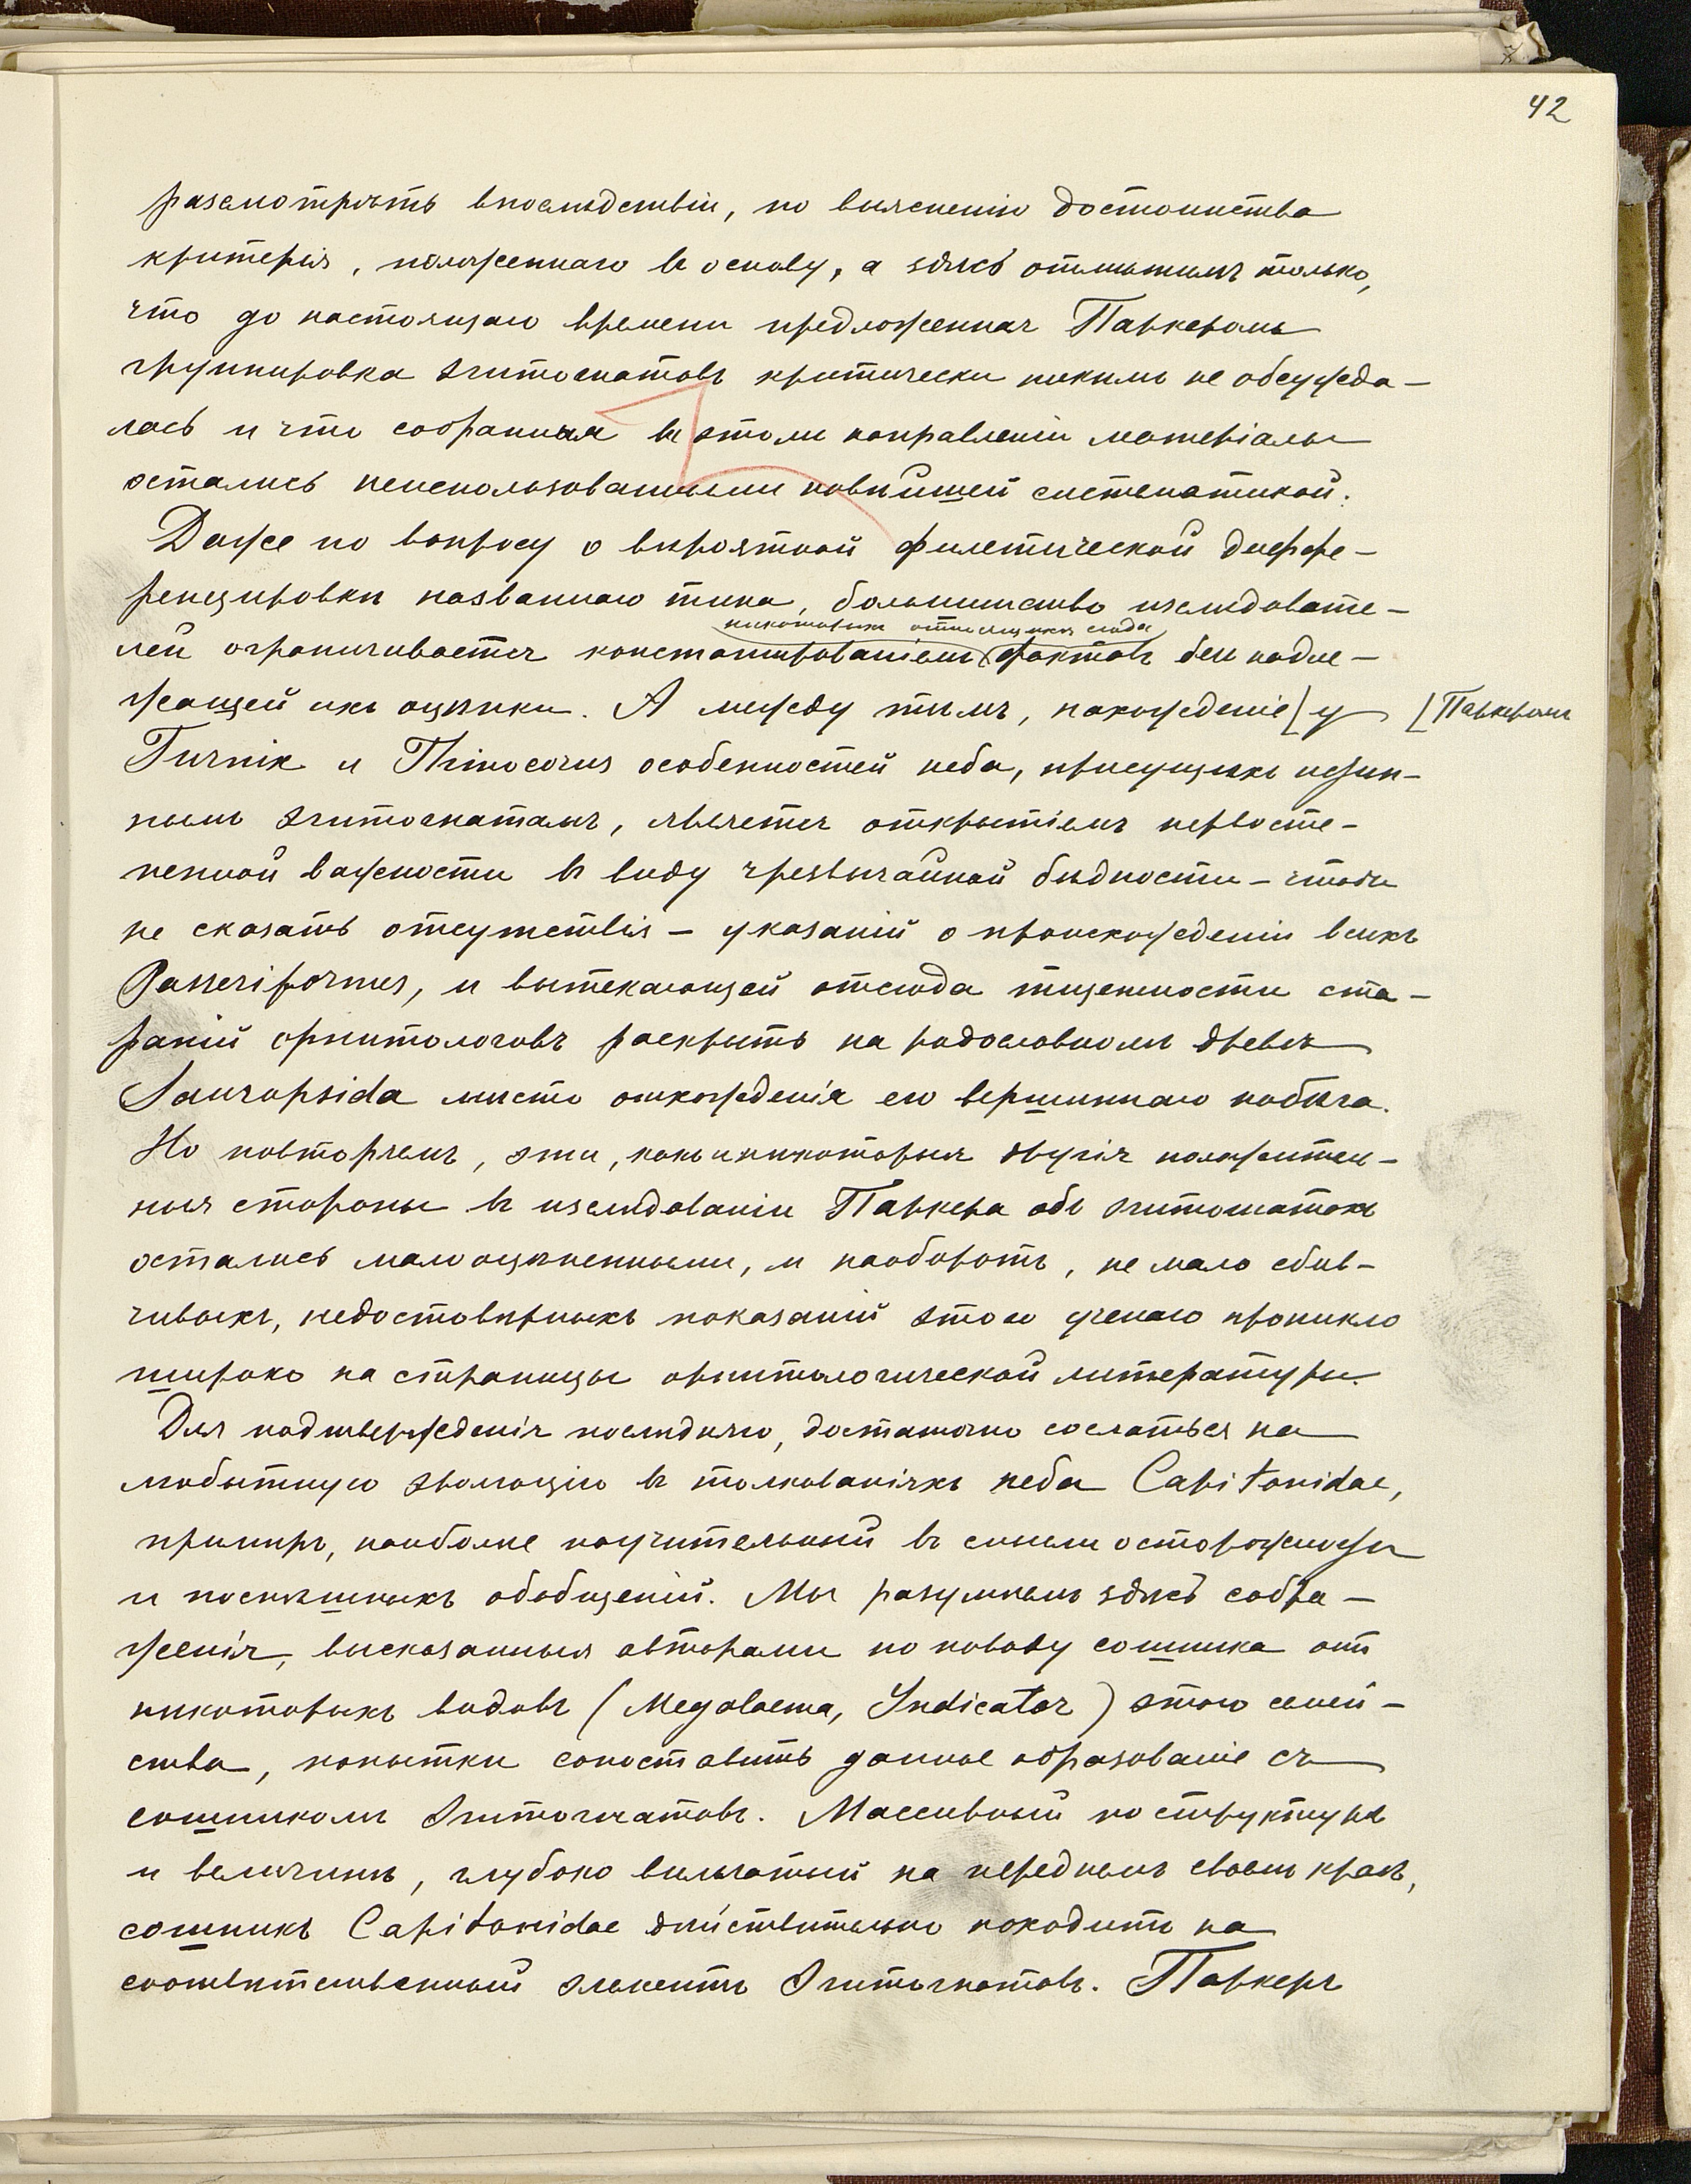 42
разсмотрѣть впослѣдствіи, по выясненію достоинства
критерія, положеннаго въ основу, а здѣсь отмѣтимъ только,
что до настоящаго времени предложенная Паркеромъ
группировка эгитогнатовъ критически никѣмъ не обсужда-
лась и что собранныя въ этомъ направленіи матеріалы
остались неиспользованными новѣйшей систематикой.
Даже по вопросу о вѣроятной филетической диффе-
ренцировки названнаго типа, большинство изслѣдовате-
нѣкоторыхъ относящихся сюда
лей ограничивается констатированіемъ фактовъ безъ надле-
жащей ихъ оцѣнки. А между тѣмъ, нахожденіе [ у [ Паркеромъ
Turnix и Thinocorus особенностей неба, присущихъ истин-
нымъ эгитогнатамъ, является открытіемъ первосте-
пенной важности въ виду чрезвычайной бѣдности – чтобы
не сказать отсутствія – указаній о происхожденіи всѣхъ
Passeriformes, и вытекающей отсюда тщетности ста-
раній орнитологовъ раскрыть на родословномъ древѣ
Sauropsida мѣсто отхожденія его вершиннаго побѣга.
Но повторяемъ, эти, какъ и нѣкоторыя другія положитель-
ныя стороны въ изслѣдованіи Паркера объ эгитогнатахъ
остались мало оцѣненными, и наоборотъ, не мало сбив-
чивыхъ, недостовѣрныхъ показаній этого ученаго проникло
широко на страницы орнитологической литературы.
Для подтвержденія послѣдняго, достаточно сослаться на
любытную эволюцію въ толкованіяхъ неба Capitonidae,
примѣръ, наиболѣе поучительный въ смыслѣ осторожности
и поспѣшныхъ обобщеній. Мы разумѣемъ здѣсь собра-
женія, высказанныя авторами по поводу сошника от
нѣкоторыхъ видовъ (Megalaema, Indicator) этого семей-
ства, попытки сопоставить данное образованіе съ
сошникомъ Эгитогнатовъ. Массивный по структурѣ
и величинѣ, глубоко выемчатый на переднемъ своемъ краѣ,
сошникъ Capitonidae дѣйствительно походитъ на
соотвѣтственный элементъ Эгитогнатовъ. Паркеръ